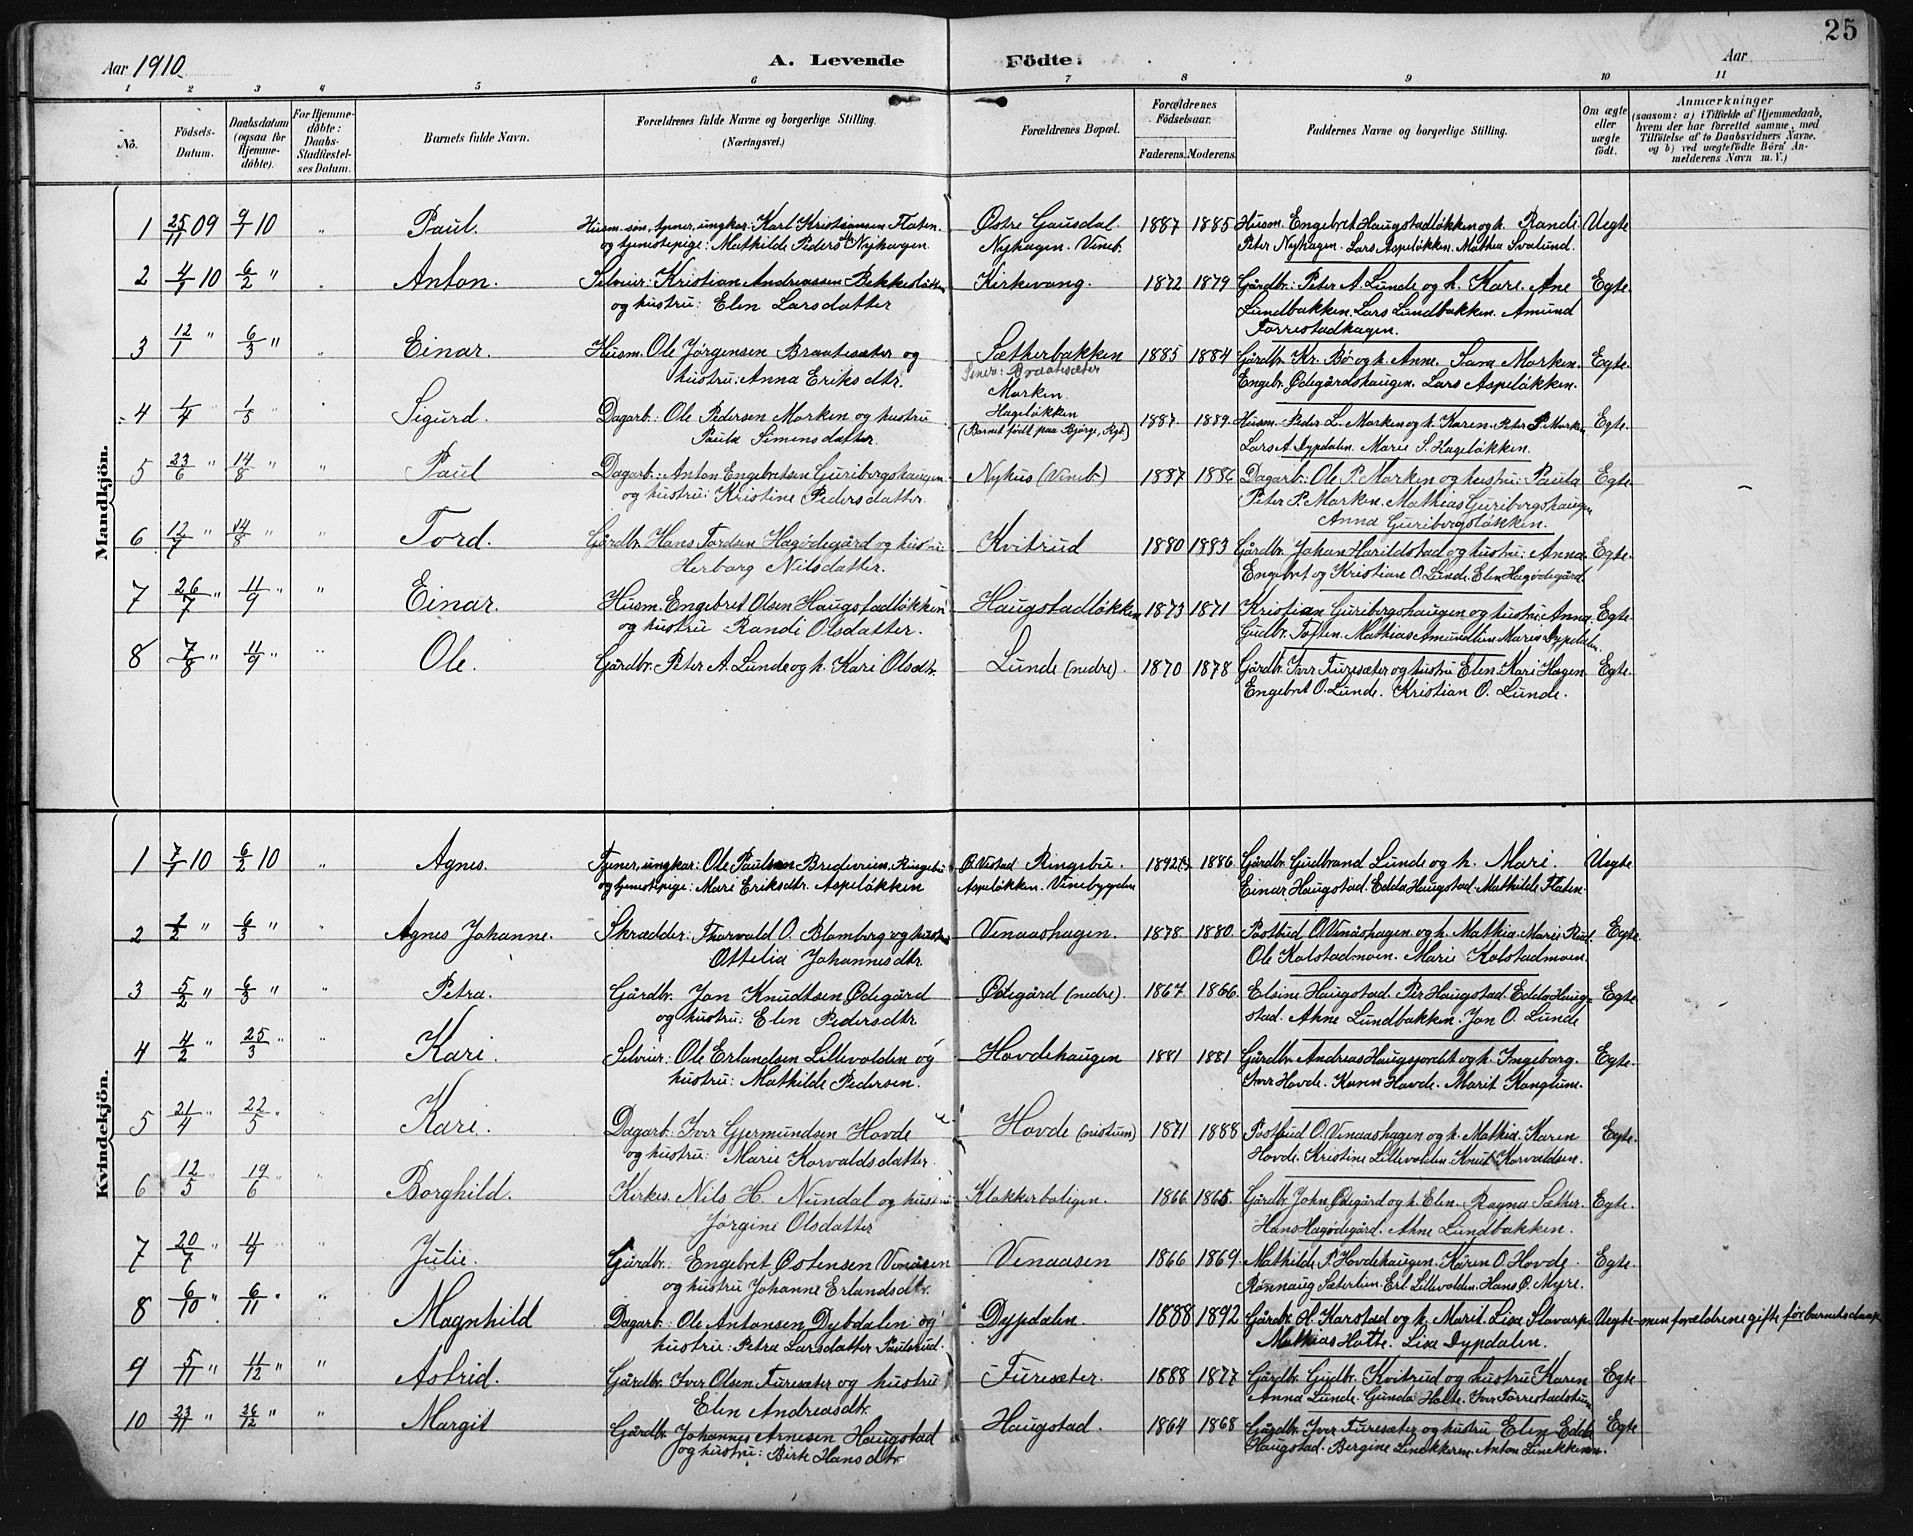 25
Aar 1910
A. Levende Fødte.
Aar
1 2 3 4 5 6 7 8 9 10 11
No.
Fødsels-Datum.
Daabsdatum (ogsaa for Hjemmedøbte).
For Hjemmedøbte: Daabs-Stadfæstelses Datum.
Barnets fulde Navn.
Forældrenes fulde Navne og borgerlige Stilling. (Næringsvei.)
Forældrenes Bopæl.
Forældrenes Fødselsaar.
Faderens. Moderens.
Faddernes Navne og borgerlige Stilling.
Om ægte eller uægte født.
Anmærkninger
(saasom: a) i Tilfælde af Hjemmedaab, hvem der har forrettet samme, med Tilføielse af to Daabsvidners Navne, og b) ved uægtefødte Børn Anmelderens Navn m. V.)
Mandkjön.
1 25/11 09 9/1 10 " Paul. Husm. søn, tjener, ungkar: Karl Kristiansen Flaten. Østre Gausdal. 1887 1885 Husm. Engebret Haugstadløkken og h. Randi. Uegte
og tjenestepige: Mathilde Pedersdtr. Nyhagen. Nyhagen. Vineb. Peter Nyhagen. Lars Aspeløkken. Mathea Svalund.
2 4/1 10 6/2 " " Anton. Selveier: Kristian Andreassen Bekkesletten Kirkevang. 1872 1879 Gårdbr: Peter A. Lunde og h. Kari. Ane Egte.
og hustru: Elen Larsdatter Lundbakken. Lars Lundbakken. Amund
Forrestadhagen.
3 12/1 " 6/3 " " Einar. Husm. Ole Jørgensen Braatesæter og Sætherbakken 1885 1884 Gårdbr. Kr. Bø og h. Anne. Sara Morken. Egte.
hustru: Anna Eriksdtr. Braatesæter Engebr. Ødegårdshaugen. Lars Aspeløkken.
4 1/4 " 1/5 " Sigurd. Dagarb: Ole Pedersen Morken og hustru Morken. Hageløkken 1887. 1889. Husm. Peder L. Morken og h. Karen. Peter P. Morken Egte.
Paula Simensdatter. (Barnet født paa Bjørge, Rgb) Lars A. Dypdalen. Marie S. Hageløkken.
5 23/6 " 14/8 " " Paul Dagarb: Anton Engebretsen Guribergshaugen Nyhus (Vineb.) 1887 1886 Dagarb: Ole P. Morken og hustru: Paula Egte
og hustru: Kristine Pedersdatter. Peter P. Morken. Mathias Guribergshaugen
Anna Guribergsløkken.
6 12/7 " 14/8 " " Tord. Gårdbr. Hans Tordsen Hagødegård og hustru Kvitrud 1880 1883 Gårdbr. Johan Harildstad og hustru: Anna Egte.
Herborg Nilsdatter. Engebret og Kristian O. Lunde. Elen Hagødegård.
7 26/7 " 11/9 " " Einar. Husm. Engebret Olsen Haugstadløkken Haugstadløkken 1873 1871 Kristian Guribergshaugen og hustru Anna. Egte.
og hustru Randi Olsdatter. Gudbr. Toften. Mathias Amundlien Maren Dypdalen.
8 7/8 " 11/9 " " Ole. Gårdbr. Peter A. Lunde og h. Kari Olsdtr. Lunde (nedre). 1870 1878 Gårdbr. Iver Furesæter og hustru Elen. Kari Hagen. Egte.
Engebret O. Lunde. Kristian O. Lunde.
Kvindekjön.
1 7/1 10 6/2 10 " Agnes. Tjener, ungkar: Ole Paulsen Bredevien. Ringebu Ø. Vestad Ringebu. 1892 1886. Gårdbr. Gudbrand Lunde og h. Mari. Uegte
og tjenestepige: Mari Eriksdtr. Aspeløkken Aspeløkken. Vinebygden Einar Haugstad. Edda Haugstad. Mathilde Flaten.
2 1/2 " 6/3 " " Agnes Johanne. Skrædder: Thorvald O. Blomberg og hustru Venaashagen. 1878 1880. Postbud O. Venåshagen og h. Mathea. Marie Rud. Egte.
Ottelia Johannesdtr. Ole Kolstadmoen. Marie Kolstadmoen.
3 5/2 " 6/3 " " Petra. Gårdbr. Jon Knudtsen Ødegård Ødegård (nedre). 1867. 1866. Elsine Haugstad. Per Haugstad. Edda Haug- Egte
og hustru: Elen Pedersdtr. stad. Ahne Lundbakken. Jon O. Lunde
4 4/2 " 25/3 " " Kari. Selveier: Ole Erlandsen Lillevolden og Hovdehaugen 1881 1881 Gårdbr. Andreas Haugsjordet og h. Ingeborg. Egte.
hustru: Mathilde Pedersen. Iver Hovde. Karen Hovde. Marit Kanglum.
5 21/4 " 22/5 " " Kari. Dagarb: Iver Gjermundsen Hovde Hovde (nistuen) 1871 1888 Postbud O. Venaashagen og h. Mathea. Karen Egte.
og hustru: Marie Korvaldsdatter. Hovde. Kristine Lillevolden. Knut Korvaldsen.
6 12/5 " 19/6 " " Borghild. Kirkes. Nils H. Nundal og hustru Klokkerboligen. 1866 1865. Gårdbr. John Ødegård og h. Elen. Ragna Sæther. Egte.
Jørgine Olsdatter Hans Hagødegård. Ahne Lundbakken.
7 20/7 " 4/9 " " Julie. Gårdbr. Engebret Østensen Venåsen Venaasen 1866 1869. Mathilde P. Hovdehaugen. Karen O. Hovde. Egte.
og hustru Johanne Erlandsdtr. Rønnaug Sæterlien. Erl. Lillevolden. Hans O. Myre.
8 6/10 " 6/11 " Magnhild Dagarb: Ole Antonsen Dybdalen og Dypdalen. 1888 1892 Gårdbr. H. Karstad og h. Marit. Lisa Stavarp. Uegte men forældrene gifte før barnets daap.
hustru: Petra Larsdatter Paulsrud. Mathias Holte. Lisa Dypdalen.
9 5/11 " 11/12 " " Astrid. Gårdbr. Iver Olsen Furesæter og hustru Furesæter. 1888 1877 Gårdbr. Gudbr. Kvitrud og hustru Karen Egte
Elen Andreasdtr. Anna Lunde. Gunda Holte. Iver Forrestadstuen
10 23/11 " 26/12 " " Margit Gårdbr. Johannes Arnesen Haugstad Haugstad. 1864 1868 Gårdbr. Iver Furesæter og hustru Elen. Edda Egte
og hustru: Birte Hansdtr. Haugstad. Bergine Linekkeren. Anton Linekkeren.